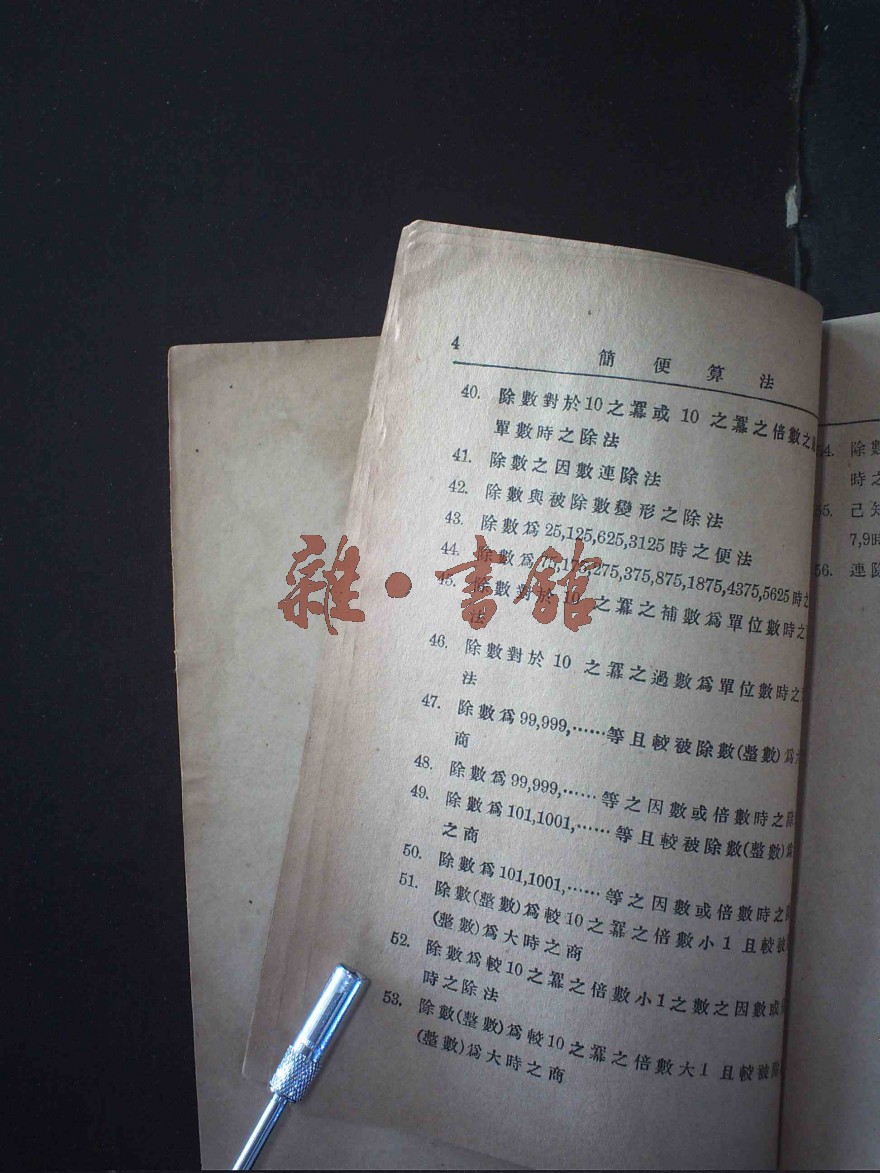 4
簡便算法
40. 除數對於10之羃或 10 之羃之倍數之
單數時之除法
41. 除數之因數連除法
42. 除數與被除數變形之除法
43. 除數爲25,125,625,3125時之便法
44. 除數爲75,175,275,375,875,1875,4375,5625時之
45. 除數對於10 之羃之補數爲單位數時之
法
46. 除數對於 10 之羃之過數爲單位數時之
法
47. 除數爲99,999,……等且較被除數(整數)爲
商
48. 除數爲99,999,……等之因數或倍數時之除
49. 除數爲101,1001,……等且較被除數(整數)
之商
50. 除數爲101,1001,……等之因數或倍數時之
51. 除數(整數)爲較10之羃之倍數小1 且較被
(整數)爲大時之商
52. 除數爲較10之羃之倍數小1之數之因數或
時之除法
53. 除數(整數)爲較10之羃之倍數大1 且較被除
(整數)爲大時之商
54. 除數
時之
55. 己知
7,9時
56. 連除
雜·書館